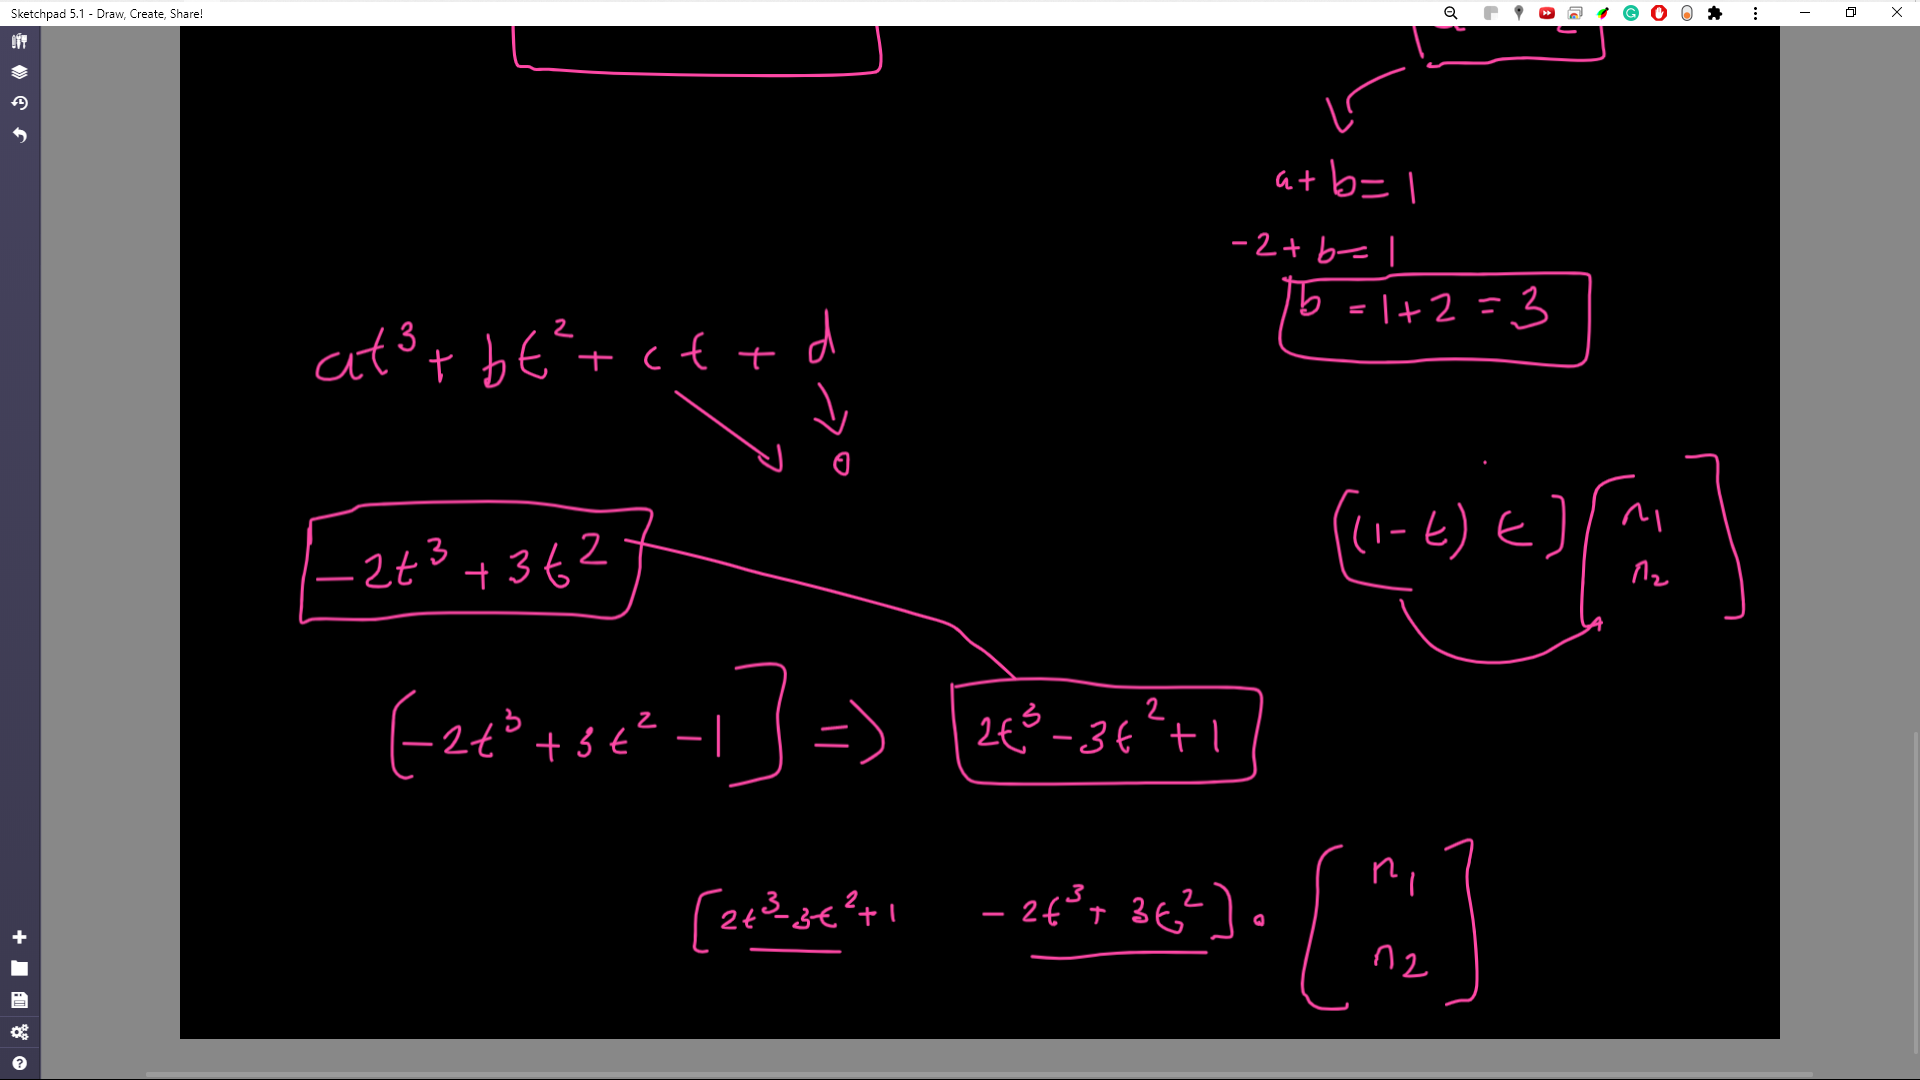 Sketchpad 5.1 - Draw, Create, Share!
a + b = 1
-2 + b = 1
b = 1 + 2 = 3
at³ + bt² + ct + d
0
-2t³ + 3t²
[(1-t) t] [n₁ n₂]
[-2t³ + 3t² - 1] => 2t³ - 3t² + 1
[2t³ - 3t² + 1 -2t³ + 3t²] . [n₁ n₂]